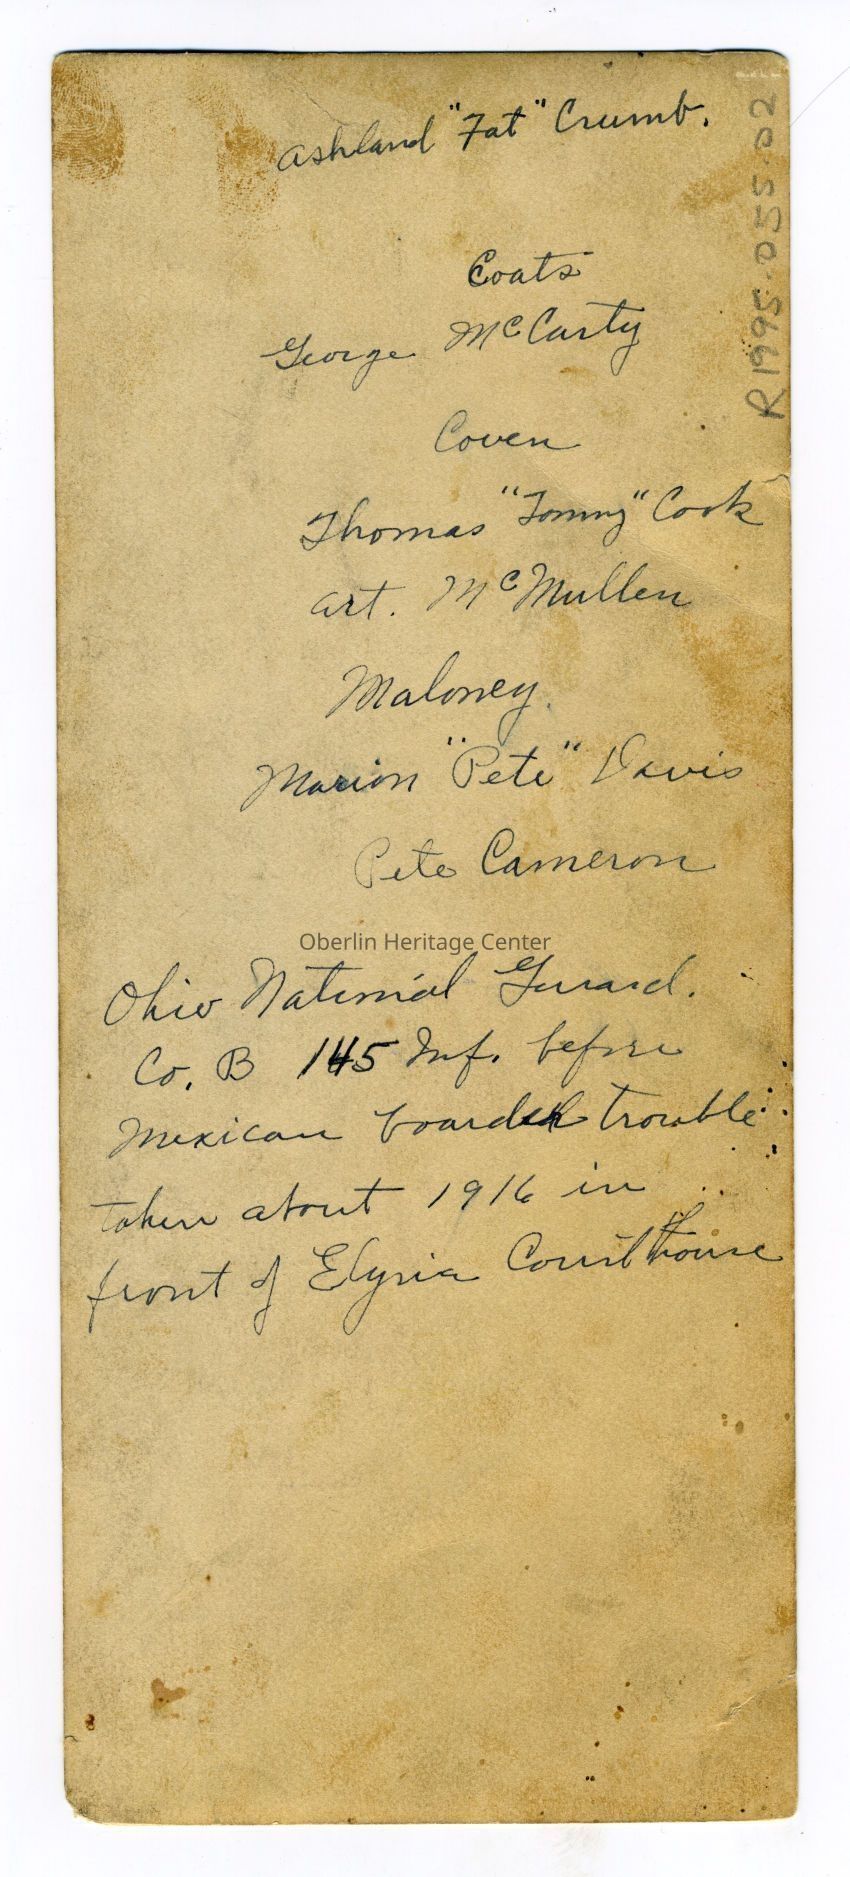 Ashland "Fat" Crumb.
R1995.055.02
Coats
George McCarty
Coven
Thomas "Tommy" Cook
Art. McMullen
Maloney.
Marion "Pete" Davis
Pete Cameron
Oberlin Heritage Center
Ohio National Guard.
Co. B 145 Inf. before
Mexican boarder trouble
taken about 1916 in
front of Elyria Courthouse